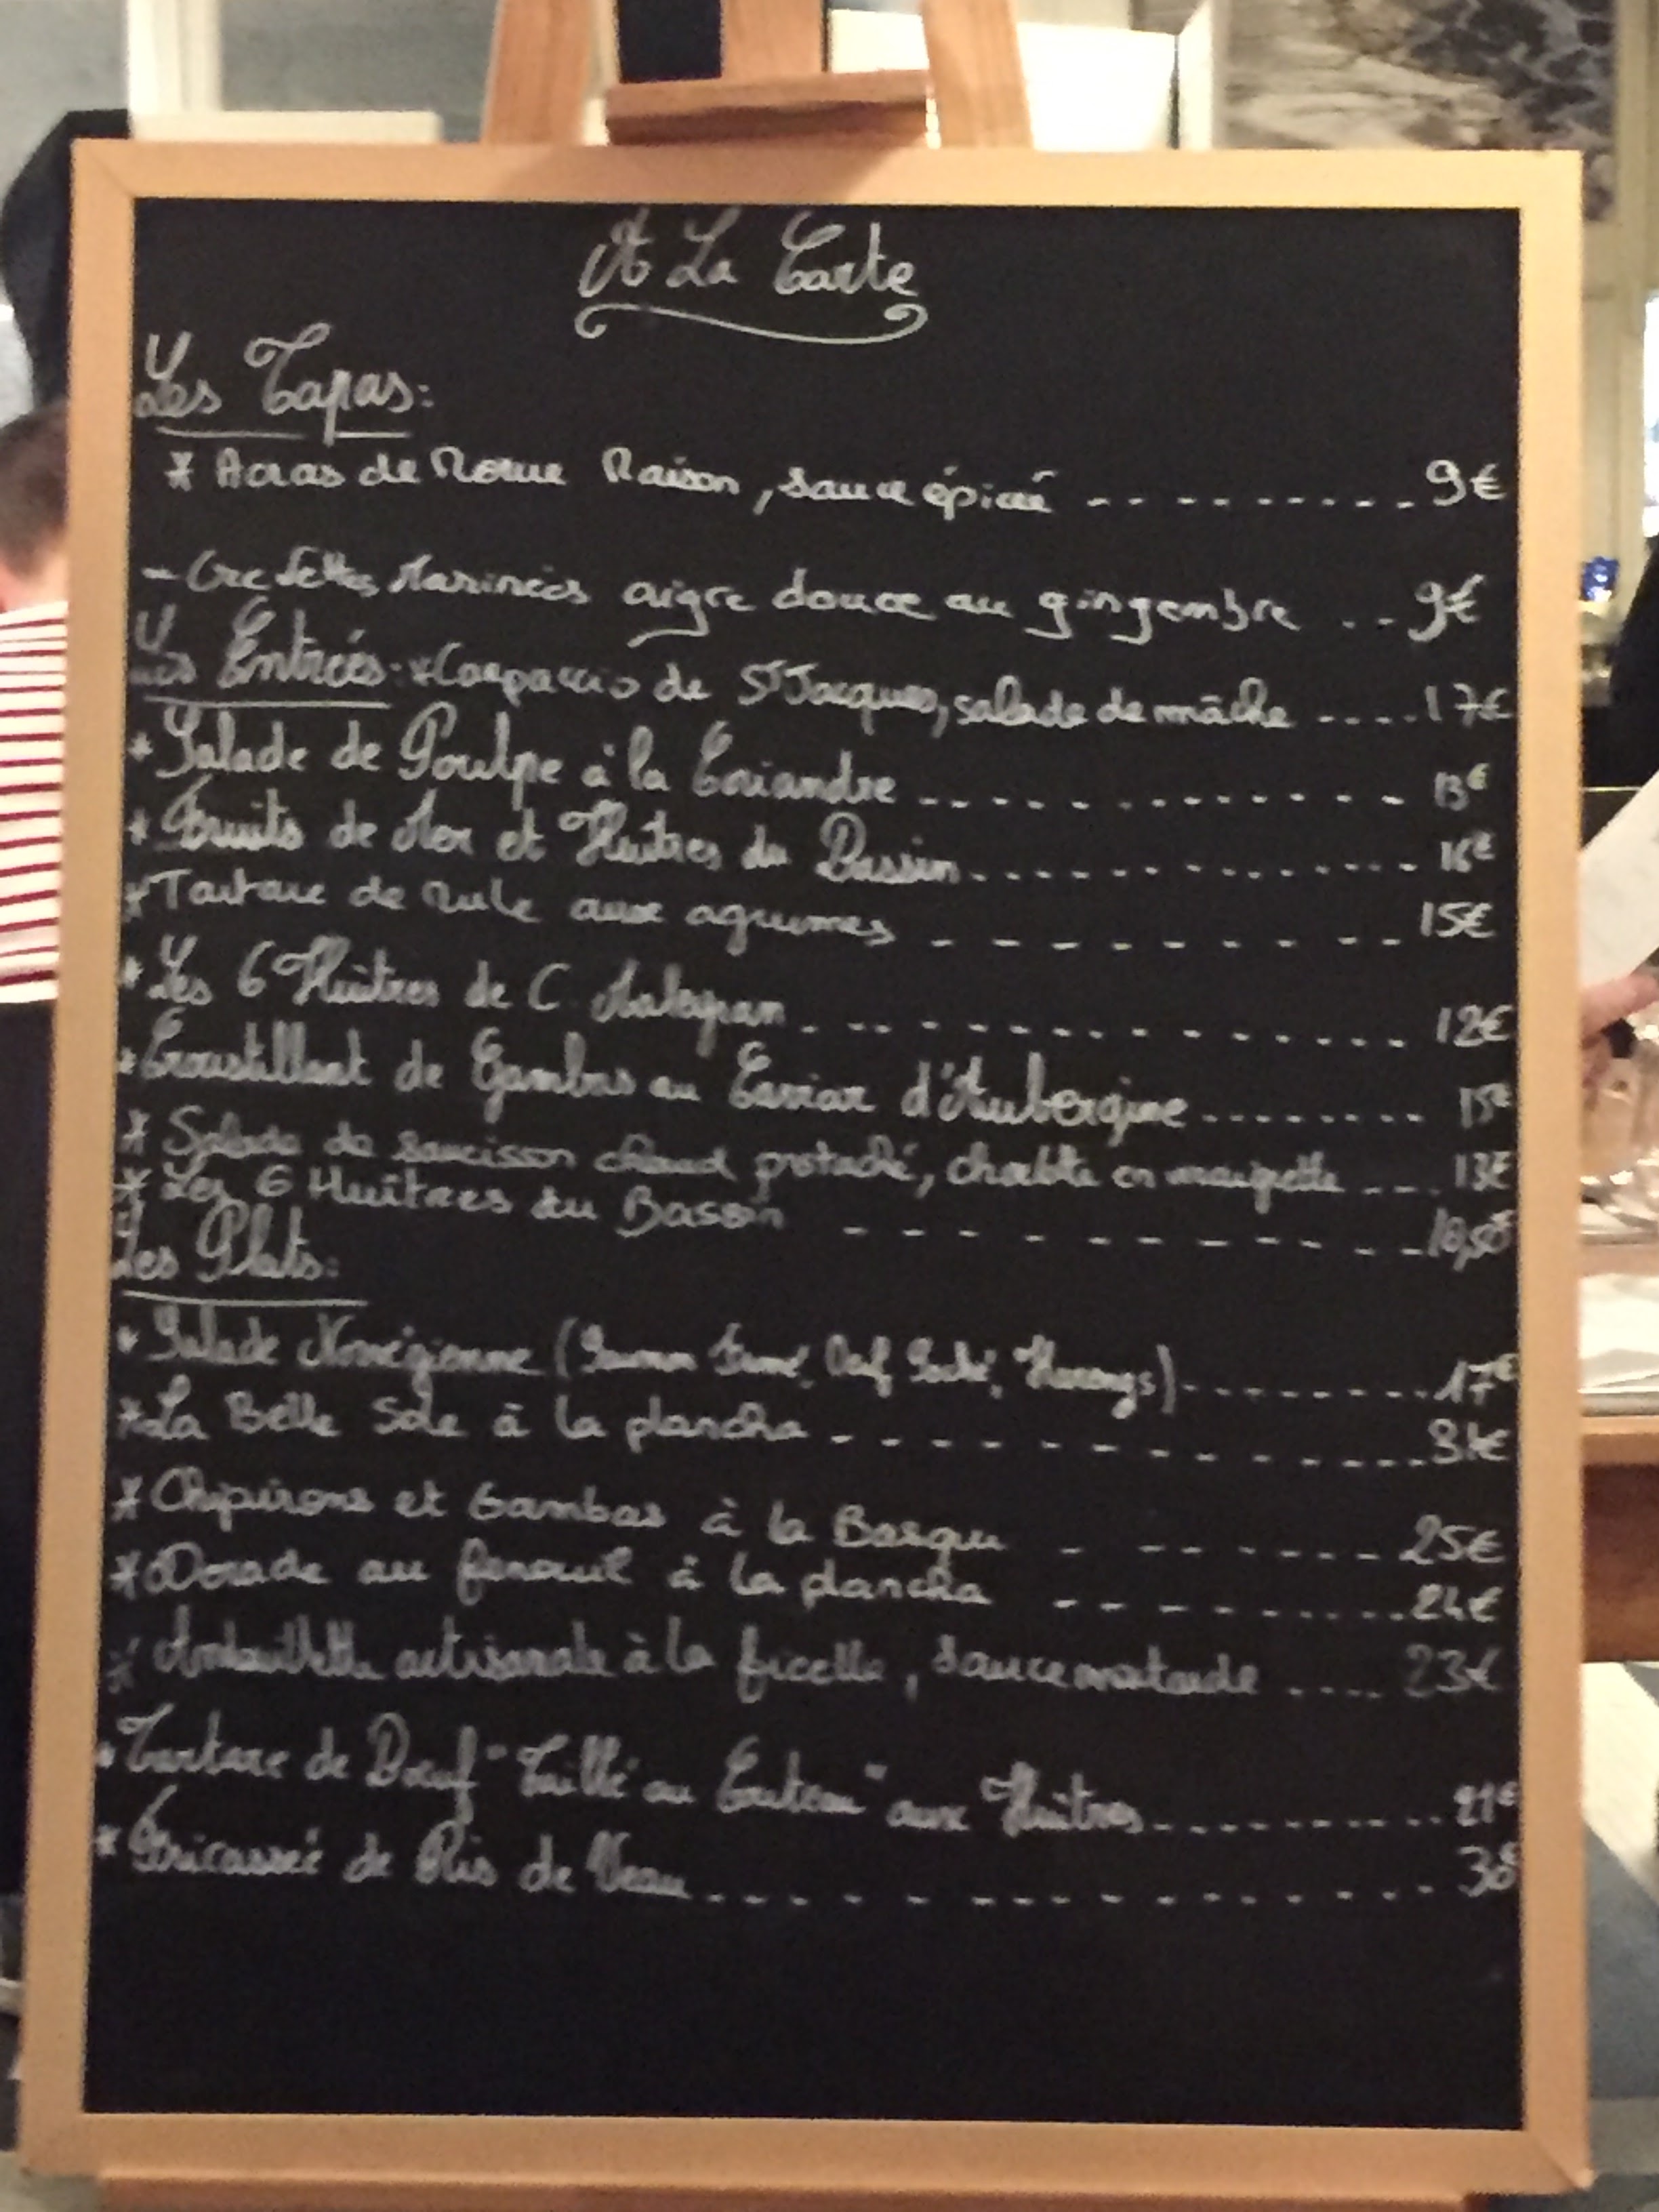 A La Carte
Les Tapas:
* Acras de Morue Maison, sauce épicée - - - - - - - - - 9€
- Crevettes Marinées aigre douce au gingembre - - - 9€
Les Entrées: * Carpaccio de St Jacques, salade de mâche - - - - 17€
* Salade de Poulpe à la Coriandre - - - - - - - - - - - - - - 13€
* Fruits de Mer et Huîtres du Bassin - - - - - - - - - - - - - 16€
* Tartare de aux agrumes - - - - - - - - - 15€
* Les 6 Huîtres de C. - - - - - - - - - - - - - - 12€
* Croustillant de Gambas au Caviar d'Aubergine - - - - - - - - 15€
* Salade de saucisson chaud pistaché, en - - - 13€
* Les 6 Huîtres du Bassin - - - - - - - - - 10,50€
Les Plats:
* Salade Norvégienne (Saumon Fumé, Oeuf Poché, Harengs) - - - - - - - - - 17€
* La Belle Sole à la plancha - - - - - - - - - - - - 34€
* Chipirons et Gambas à la Basque - - - - - - - 25€
* Dorade au fenouil à la plancha - - - - - - - - - - 24€
* Andouillette artisanale à la ficelle, sauce moutarde - - - - 23€
* Tartare de Bœuf "Taillé au Couteau" aux Huîtres - - - - - - - - - 21€
* Fricassée de Ris de Veau - - - - - - - - - - - - - - - 30€